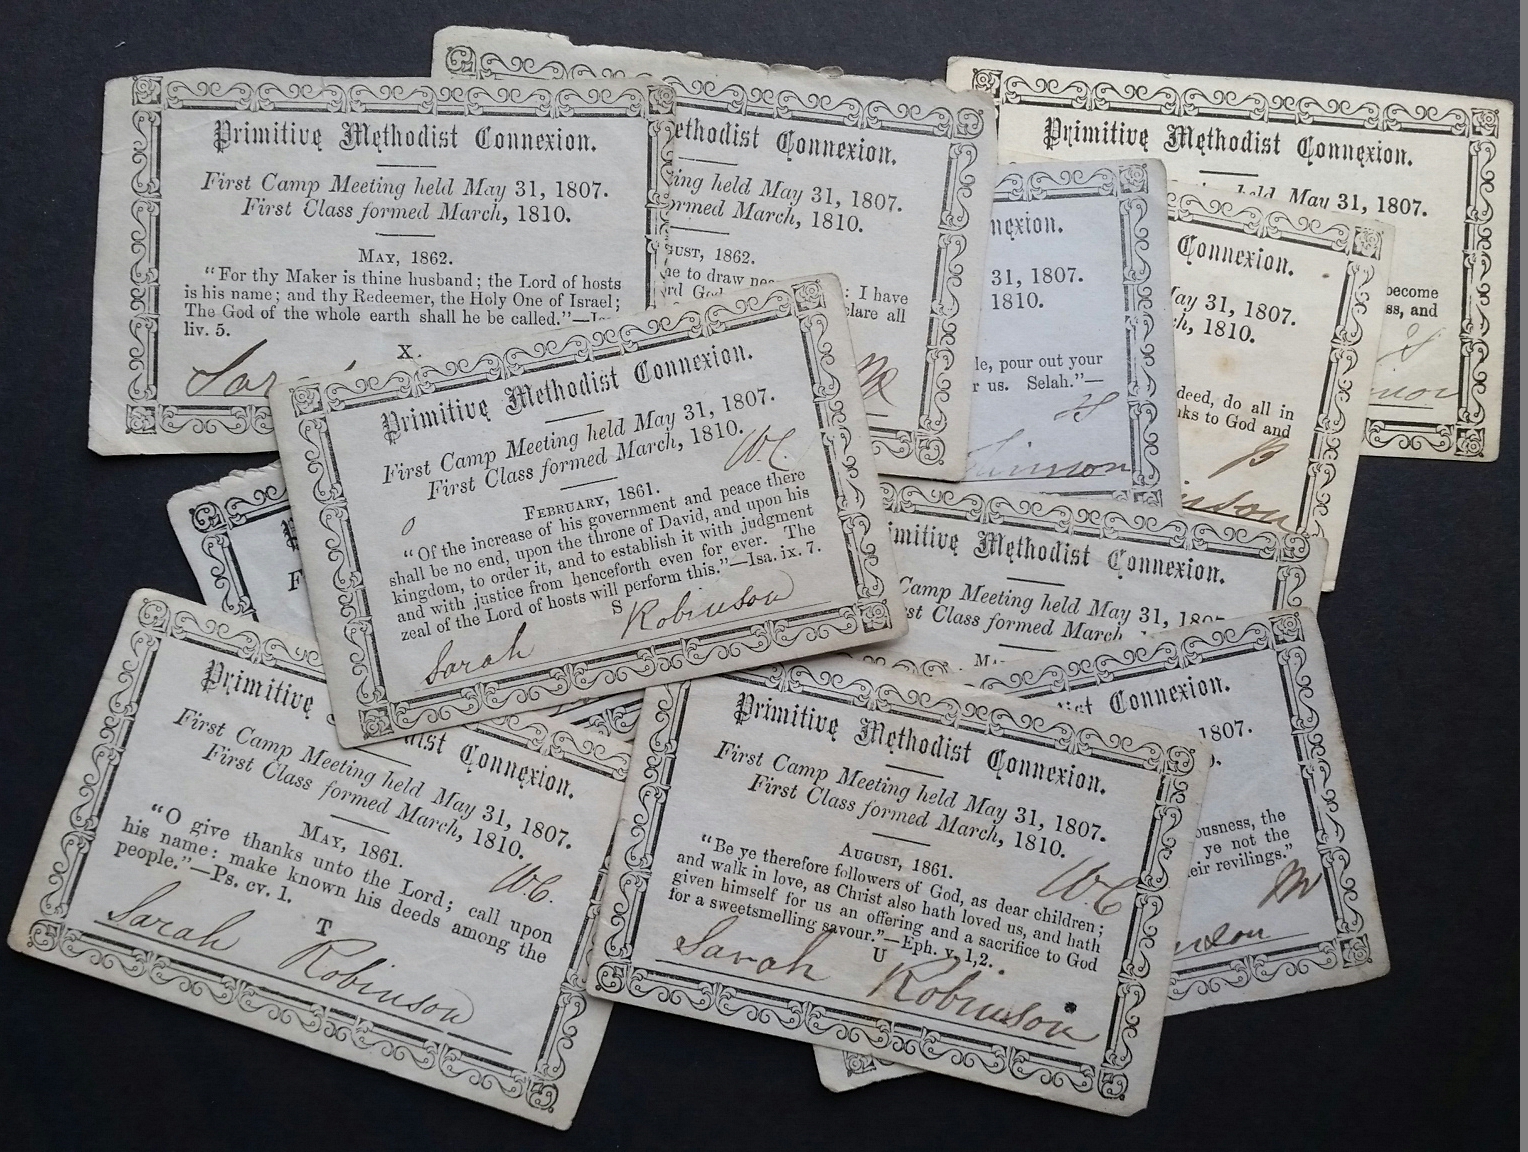 Primitive Methodist Connexion.
First Camp Meeting held May 31, 1807.
First Class formed March, 1810.
May, 1862.
"For thy Maker is thine husband; the Lord of hosts
is his name; and thy Redeemer, the Holy One of Israel;
The God of the whole earth shall he be called."—
liv. 5.
X.
ethodist Connexion.
ing held May 31, 1807.
ormed March, 1810.
gust, 1862.
e to draw
rd God : I have
clare all
Primitive Methodist Connexion.
held May 31, 1807.
become
ss, and
nexion.
31, 1807.
1810.
le, pour out your
r us. Selah."—
Connexion.
May 31, 1807.
ch, 1810.
deed, do all in
nks to God and
Primitive Methodist Connexion.
First Camp Meeting held May 31, 1807.
First Class formed March, 1810.
WC.
February, 1861.
"Of the increase of his government and peace there
shall be no end, upon the throne of David, and upon his
kingdom, to order it, and to establish it with judgment
and with justice from henceforth even for ever. The
zeal of the Lord of hosts will perform this."—Isa. ix. 7.
S
Sarah Robinson
F
imitive Methodist Connexion.
Camp Meeting held May 31, 1807
st Class formed March
Primitive
dist Connexion.
First Camp Meeting held May 31, 1807.
First Class formed March, 1810.
May, 1861.
WC.
"O give thanks unto the Lord; call upon
his name: make known his deeds among the
people."—Ps. cv. 1.
T
Sarah Robinson
Primitive Methodist Connexion.
First Camp Meeting held May 31, 1807.
First Class formed March, 1810.
August, 1861.
WC
"Be ye therefore followers of God, as dear children;
and walk in love, as Christ also hath loved us, and hath
given himself for us an offering and a sacrifice to God
for a sweetsmelling savour."—Eph. v. 1,2.
U
Sarah Robinson
dist Connexion.
1807.
ousness, the
ye not the
eir revilings."